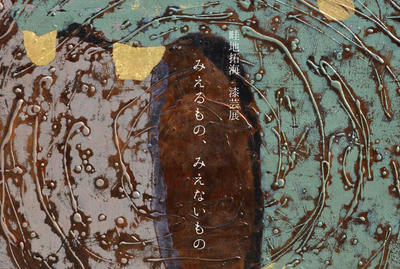 畦地拓海 漆芸展
みえるもの、みえないもの